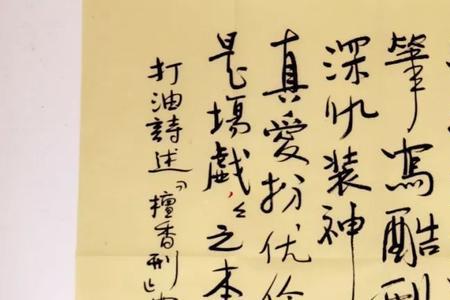 筆寫酷刑
深仇装神
真愛扮优
是場戲,々之本
打油詩述『檀香刑』